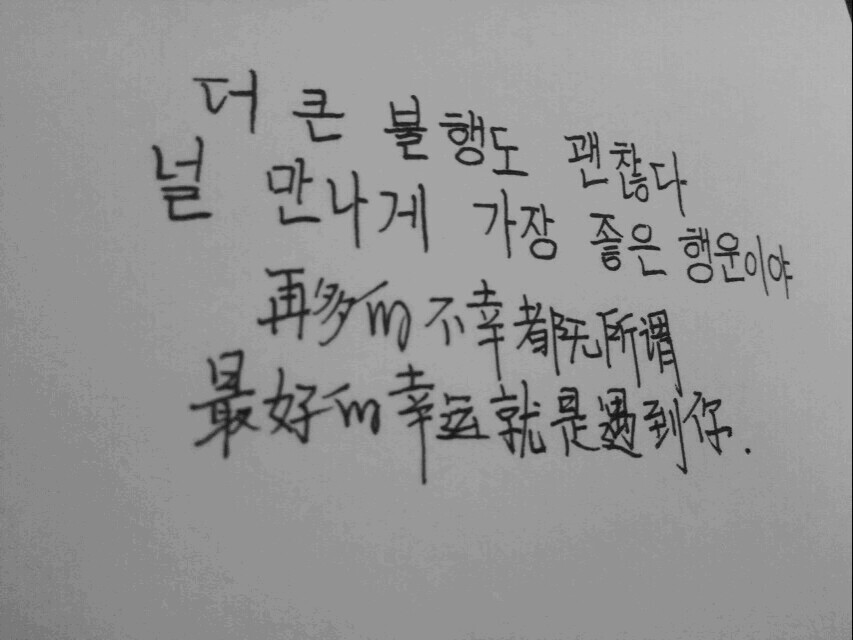 더 큰 불행도 괜찮다
널 만나게 가장 좋은 행운이야
再多的不幸都无所谓
最好的幸运就是遇到你.